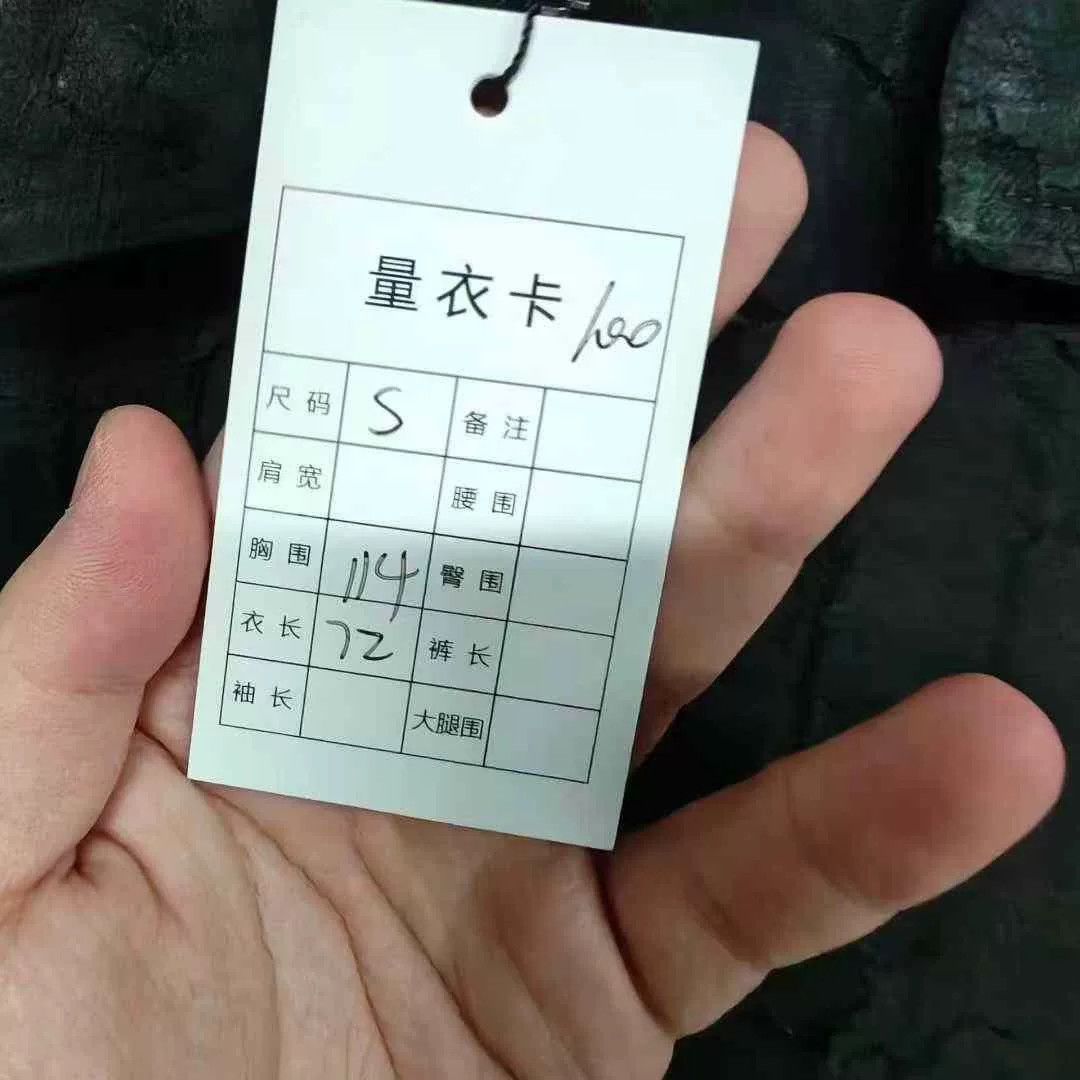 量衣卡 100
尺码 S 备注
肩宽 腰围
胸围 114 臀围
衣长 72 裤长
袖长 大腿围